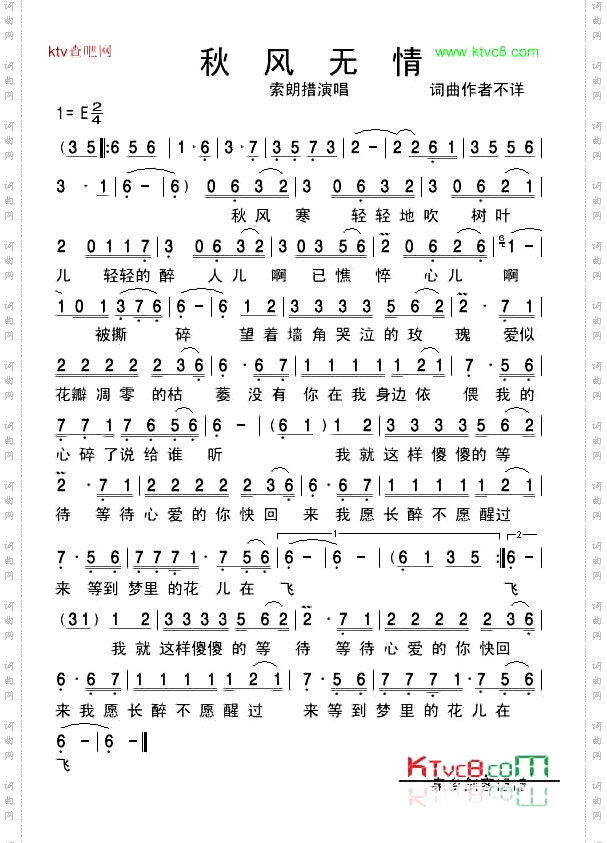 ktv查吧网
秋风无情
www.ktvc8.com
索朗措演唱 词曲作者不详
1=E 2/4
(3 5 |: 6 5 6 | 1·6 | 3·7 | 3 5 7 | 2 - | 2 2 6 1 | 3 5 6 |
3·1 | 6 - | 6) 0 6 3 2 | 3 0 6 3 2 | 3 0 6 2 1 |
秋风 寒 轻轻地吹 树叶
2 0 1 1 7 | 3 0 6 3 2 | 3 0 3 5 6 | 2 0 6 2 6 | 1 - |
儿 轻轻的醉 人儿 啊 已憔 悴 心儿 啊
1 0 1 0 | 3 7 6 | 6 1 2 | 3 3 3 3 | 5 6 2 | 2·7 1 |
被撕 碎 望着墙角哭泣的玫 瑰 爱似
2 2 2 2 | 2 2 3 6 | 6·6 7 | 1 1 1 1 | 1 2 1 | 7·5 6 |
花瓣凋零 的枯 萎 没有 你在我身边依 偎我的
7 7 1 7 | 7 6 5 6 | 6 - | (6 1) 1 2 | 3 3 3 3 | 5 6 2 |
心碎了说给谁 听 我就这样傻傻的等
2·7 1 | 2 2 2 2 | 2 3 6 | 6·6 7 | 1 1 1 1 | 1 2 1 |
待 等待心爱的你快回 来 我愿长醉不愿醒过
1 2
7·5 6 | 7 7 7 1 | 7 6 5 6 | 6 - | 6 - | (6 1 3 5 :| 6 - |
来 等到梦里的花儿在 飞 飞
(3 1) 1 2 | 3 3 3 3 | 5 6 2 | 2·7 1 | 2 2 2 2 | 2 3 6 |
我就这样傻傻的等 待 等待心爱的你快回
6·6 7 | 1 1 1 1 | 1 2 1 | 7·5 6 | 7 7 7 1 | 7 6 5 6 |
来我愿长醉不愿醒过 来等到梦里的花儿在
6 - | 6 - |
飞
KTvc8.com
词曲网